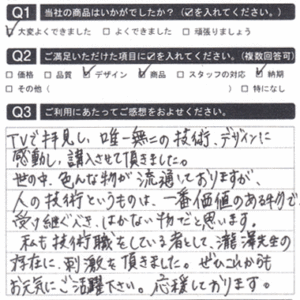 Q1 当社の商品はいかがでしたか?(☑を入れてください。)
☑大変よくできました □よくできました □頑張りましょう
Q2 ご満足いただけた項目に☑を入れてください。(複数回答可)
□価格 □品質 ☑デザイン ☑商品 □スタッフの対応 ☑納期
□その他( ) □特になし
Q3 ご利用にあたってご感想をおよせください。
TVで拝見し、唯一無二の技術、デザインに
感動し、購入させて頂きました。
世の中、色んな物が流通しておりますが、
人の技術というものは、一番価値のある物で
受け継ぐべき、はかない物だと思います。
私も技術職をしている者として、瀧澤先生の
存在に、刺激を頂きました。ぜひこれからも
お元気にご活躍下さい。応援しております。